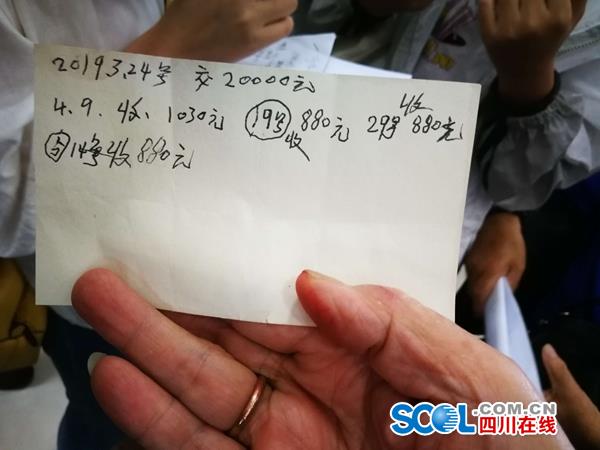 2019 3.24号 交 20000元
4.9.收.1030元 19号 收 880元 29号 收 880元
14号收 880元
SCOL.COM.CN
四川在线